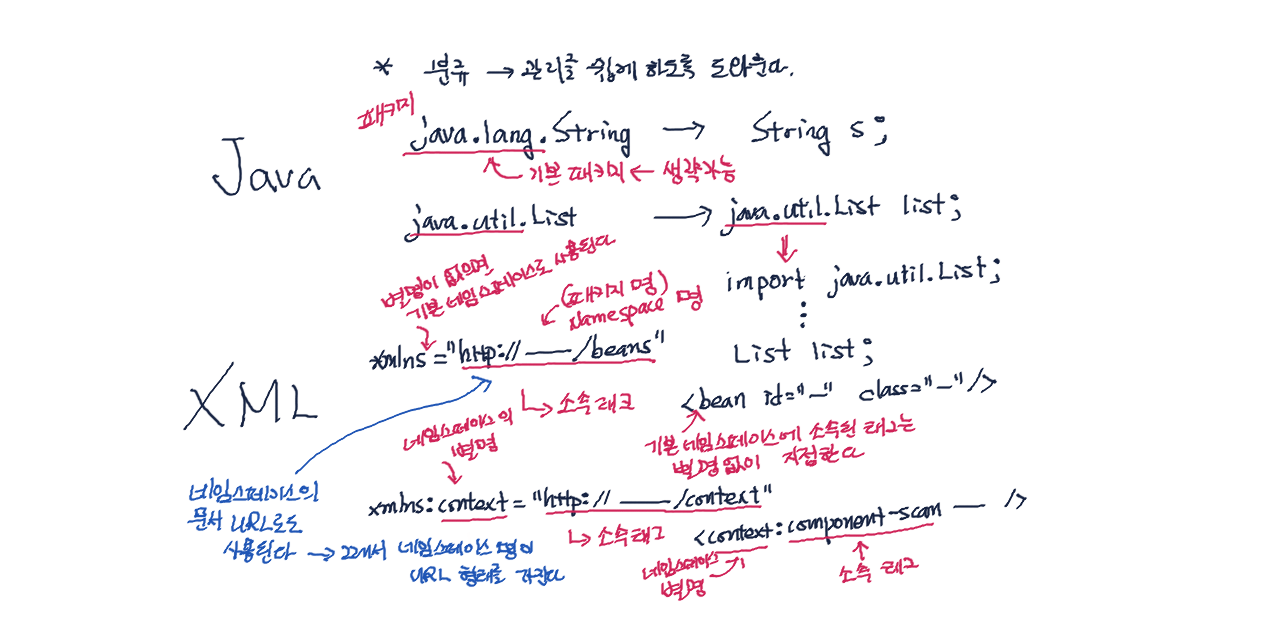 * 분류 → 관리를 쉽게 하도록 도와준다.
패키지
Java
java.lang.String → String s;
기본 패키지 ← 생략가능
java.util.List → java.util.List list;
import java.util.List;
⋮
List list;
별명이 없으면
기본 네임스페이스로 사용된다
(패키지 명)
Namespace 명
XML
xmlns="http:// ― /beans"
↳ 소속 태그
<bean id="_" class="_"/>
기본 네임스페이스에 소속된 태그는
별명 없이 지정한다
네임스페이스의
별명
xmlns:context="http:// ― /context"
↳ 소속태그
<context:component-scan ― />
네임스페이스
별명
소속 태그
네임스페이스의
문서 URL로도
사용된다 → 그래서 네임스페이스 명이
URL 형태를 가진다